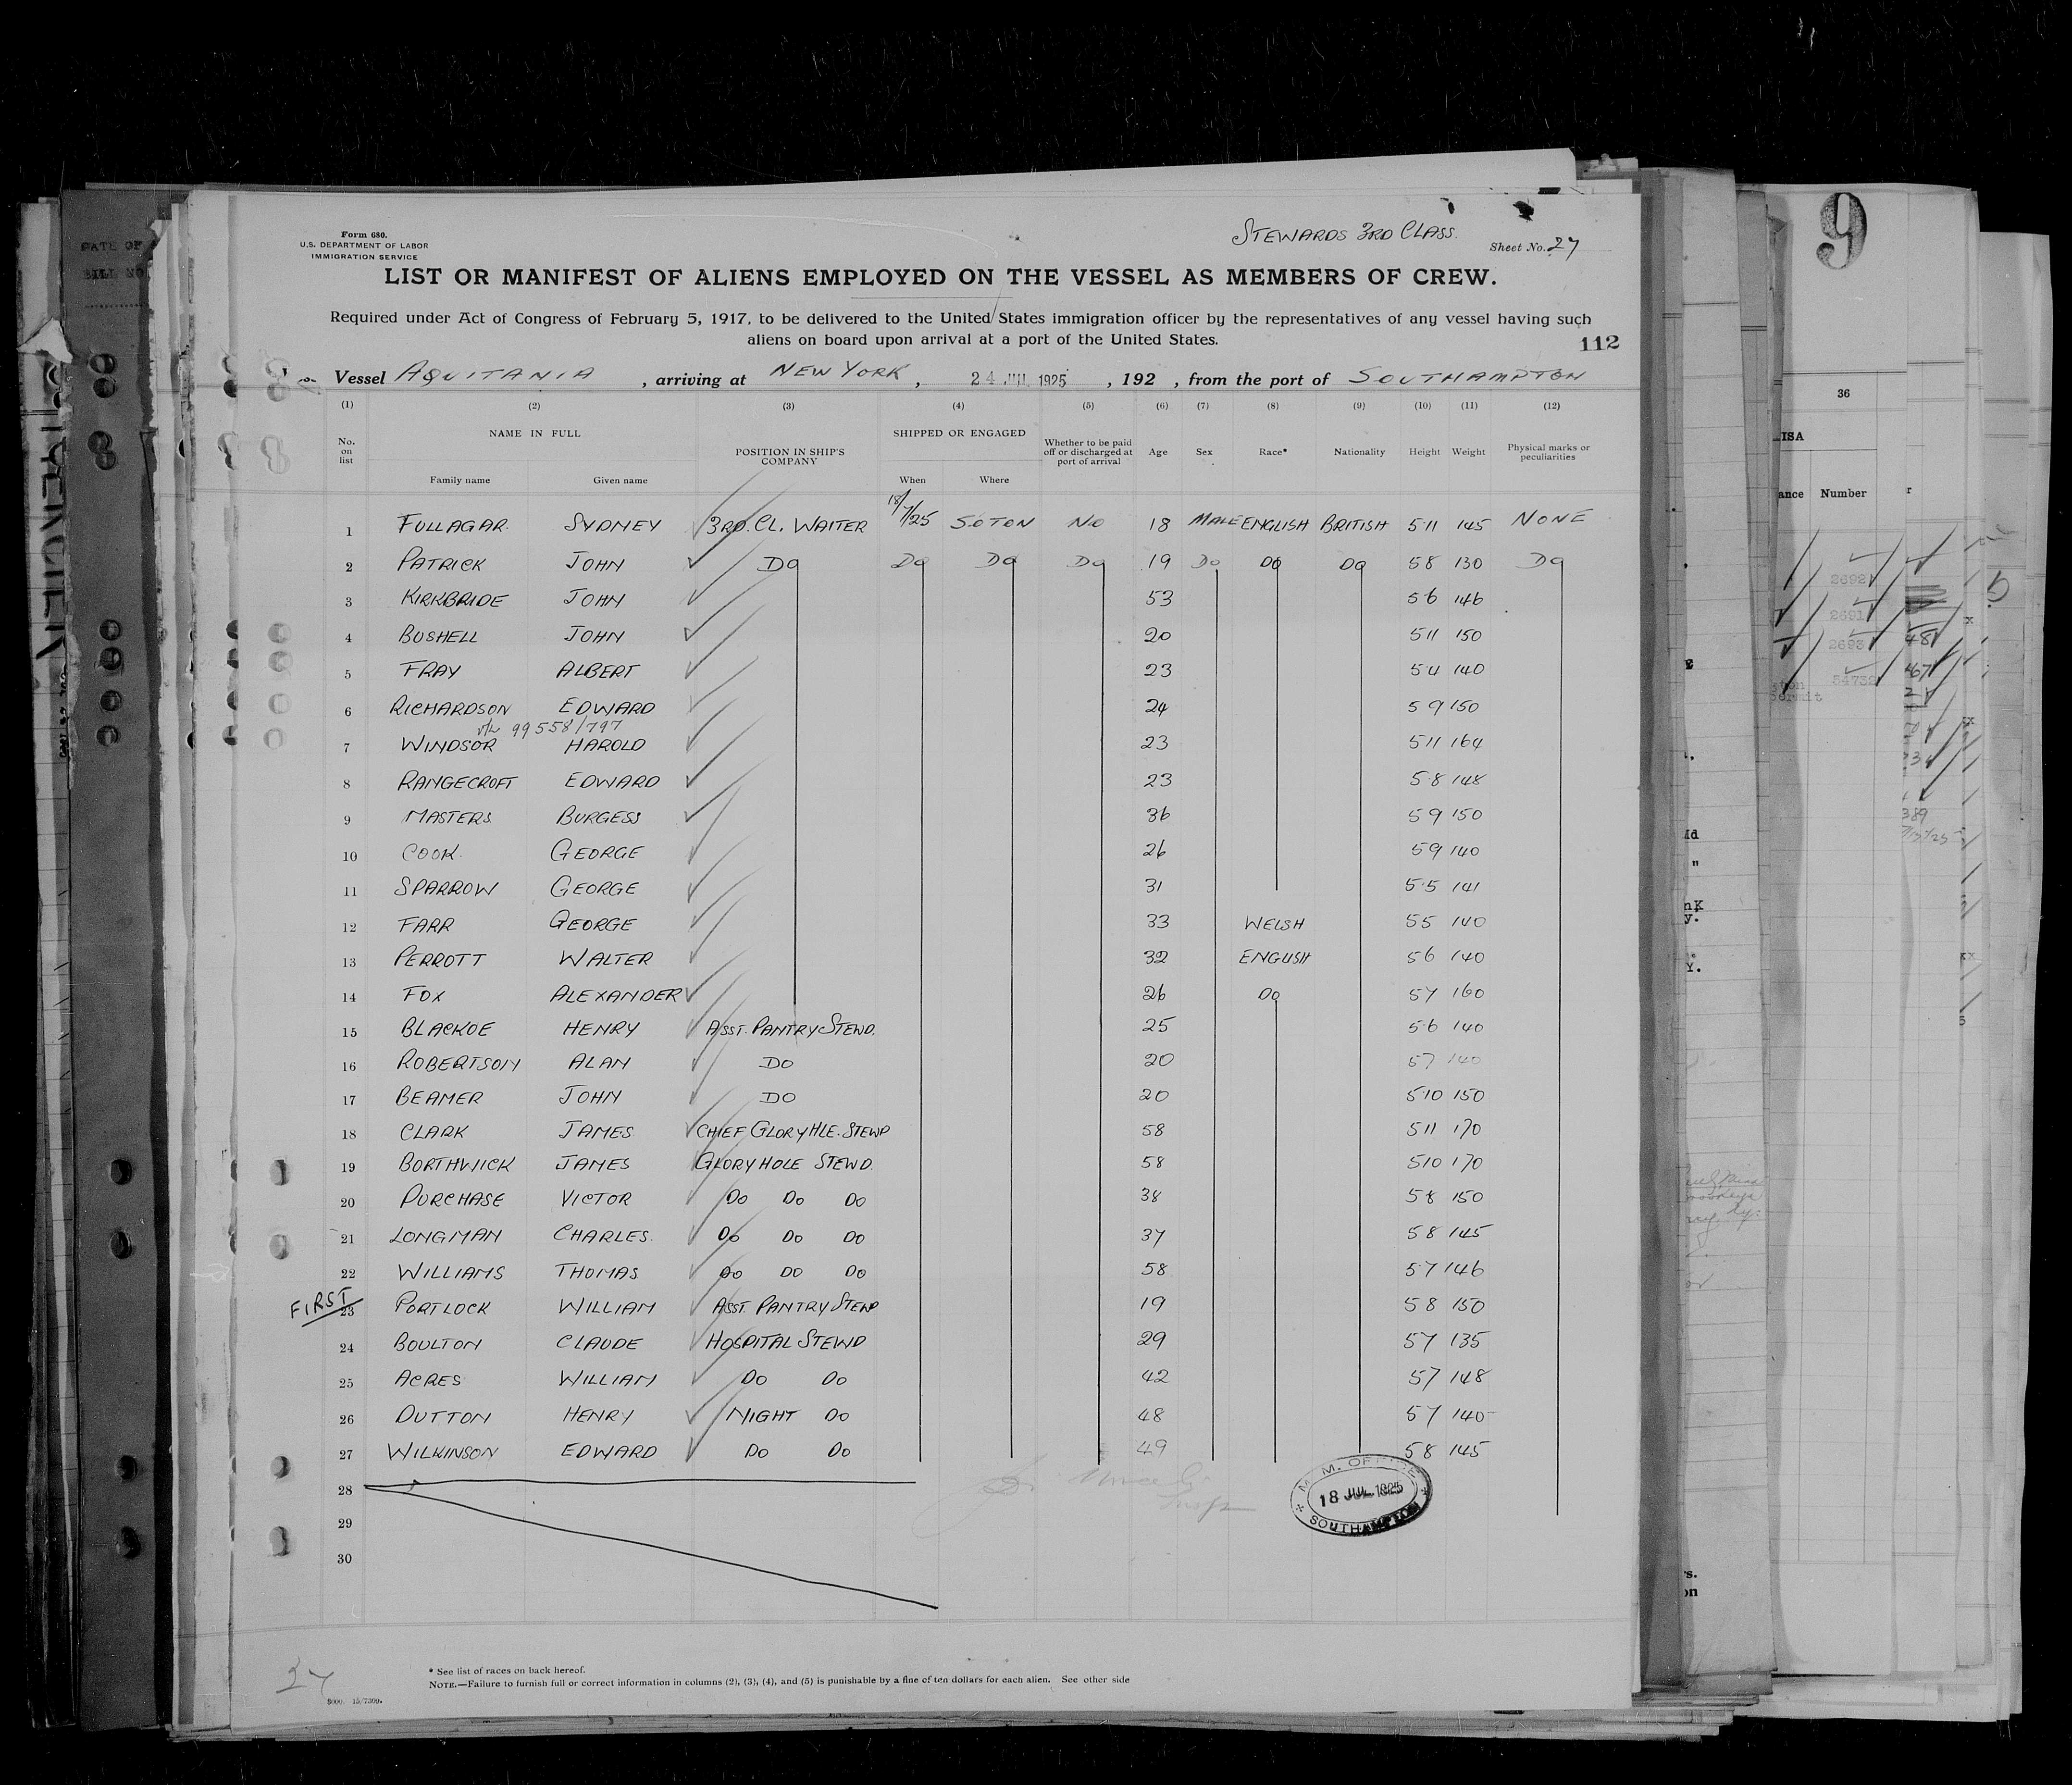 Form 680.
U.S. DEPARTMENT OF LABOR
IMMIGRATION SERVICE
STEWARDS 3RD CLASS.
Sheet No. 27
LIST OR MANIFEST OF ALIENS EMPLOYED ON THE VESSEL AS MEMBERS OF CREW.
Required under Act of Congress of February 5, 1917, to be delivered to the United States immigration officer by the representatives of any vessel having such
aliens on board upon arrival at a port of the United States.
112
Vessel AQUITANIA , arriving at NEW YORK , 24 JUL 1925 , 192 , from the port of SOUTHAMPTON
(1) (2) (3) (4) (5) (6) (7) (8) (9) (10) (11) (12)
No. on list NAME IN FULL POSITION IN SHIP'S COMPANY SHIPPED OR ENGAGED Whether to be paid off or discharged at port of arrival Age Sex Race* Nationality Height Weight Physical marks or peculiarities
Family name Given name When Where
1 FULLAGAR SYDNEY 3RD. CL. WAITER 18/7/25 SOTON NO 18 MALE ENGLISH BRITISH 5 11 145 NONE
2 PATRICK JOHN DO DO DO DO 19 DO DO DO 5 8 130 DO
3 KIRKBRIDE JOHN 53 5 6 146
4 BUSHELL JOHN 20 5 11 150
5 FRAY ALBERT 23 5 4 140
6 RICHARDSON EDWARD 24 5 9 150
99558/797
7 WINDSOR HAROLD 23 5 11 164
8 RANGECROFT EDWARD 23 5 8 148
9 MASTERS BURGESS 36 5 9 150
10 COOK GEORGE 26 5 9 140
11 SPARROW GEORGE 31 5 5 141
12 FARR GEORGE 33 WELSH 5 5 140
13 PERROTT WALTER 32 ENGLISH 5 6 140
14 FOX ALEXANDER 26 DO 5 7 160
15 BLACKOE HENRY ASST. PANTRY STEWD. 25 5 6 140
16 ROBERTSON ALAN DO 20 5 7 140
17 BEAMER JOHN DO 20 5 10 150
18 CLARK JAMES CHIEF GLORY HLE. STEWD 58 5 11 170
19 BORTHWICK JAMES GLORY HOLE STEWD. 58 5 10 170
20 PURCHASE VICTOR DO DO DO 38 5 8 150
21 LONGMAN CHARLES. DO DO DO 37 5 8 145
22 WILLIAMS THOMAS DO DO DO 58 5 7 146
FIRST
23 PORTLOCK WILLIAM ASST. PANTRY STEWD 19 5 8 150
24 BOULTON CLAUDE HOSPITAL STEWD 29 5 7 135
25 ACRES WILLIAM DO DO 42 5 7 148
26 DUTTON HENRY NIGHT DO 48 5 7 140
27 WILKINSON EDWARD DO DO 49 5 8 145
28
29
30
M.M. OFFICE
18 JUL. 1925
SOUTHAMPTON
27
* See list of races on back hereof.
NOTE.—Failure to furnish full or correct information in columns (2), (3), (4), and (5) is punishable by a fine of ten dollars for each alien. See other side
5000. 15/7300.
9
36
ISA
ance Number
2692
2691
2693 48
54732 467
389